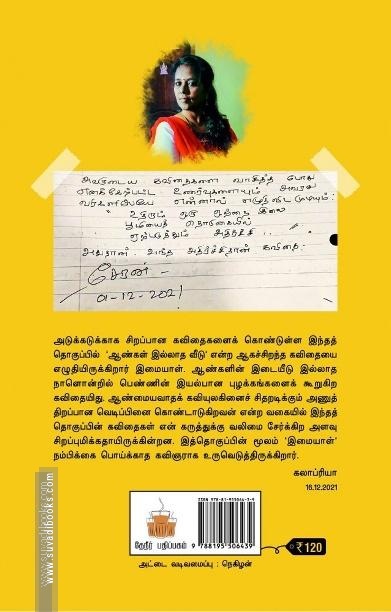 அவருடைய கவிதைகளை வாசித்த போது
எனக்கேற்பட்ட உணர்வுகளையும் அவரது
வரிகளிலேயே என்னால் எழுதிவிட முடியும்.
"உதிரும் ஒரு ஒற்றை இலை
ஏற்படுத்தும் அதிர்ச்சி..
அவ்வளவுதான். அந்த அதிர்ச்சிதான் கவிதை.
சேரன்
01-12-2021
அடுக்கடுக்காக சிறப்பான கவிதைகளைக் கொண்டுள்ள இந்தத்
தொகுப்பில் 'ஆண்கள் இல்லாத வீடு' என்ற ஆகச்சிறந்த கவிதையை
எழுதியிருக்கிறார் இமையாள். ஆண்களின் இடையீடு இல்லாத
நாளொன்றில் பெண்ணின் இயல்பான புழக்கங்களைக் கூறுகிற
கவிதையிது. ஆண்மையவாதக் கவியுலகினைச் சிதறடிக்கும் அணுத்
திறப்பான வெடிப்பினை கொண்டாடுகிறவன் என்ற வகையில் இந்தத்
தொகுப்பின் கவிதைகள் என் கருத்துக்கு வலிமை சேர்க்கிற அளவு
சிறப்புமிக்கதாயிருக்கின்றன. இத்தொகுப்பின் மூலம் 'இமையாள்'
நம்பிக்கை பொய்க்காத கவிஞராக உருவெடுத்திருக்கிறார்.
கலாப்ரியா
16.12.2021
தேநீர் பதிப்பகம்
ISBN 978-81-955064-3-9
9 788195 506439
₹ 120
அட்டை வடிவமைப்பு : நெகிழன்
www.suvadibooks.com